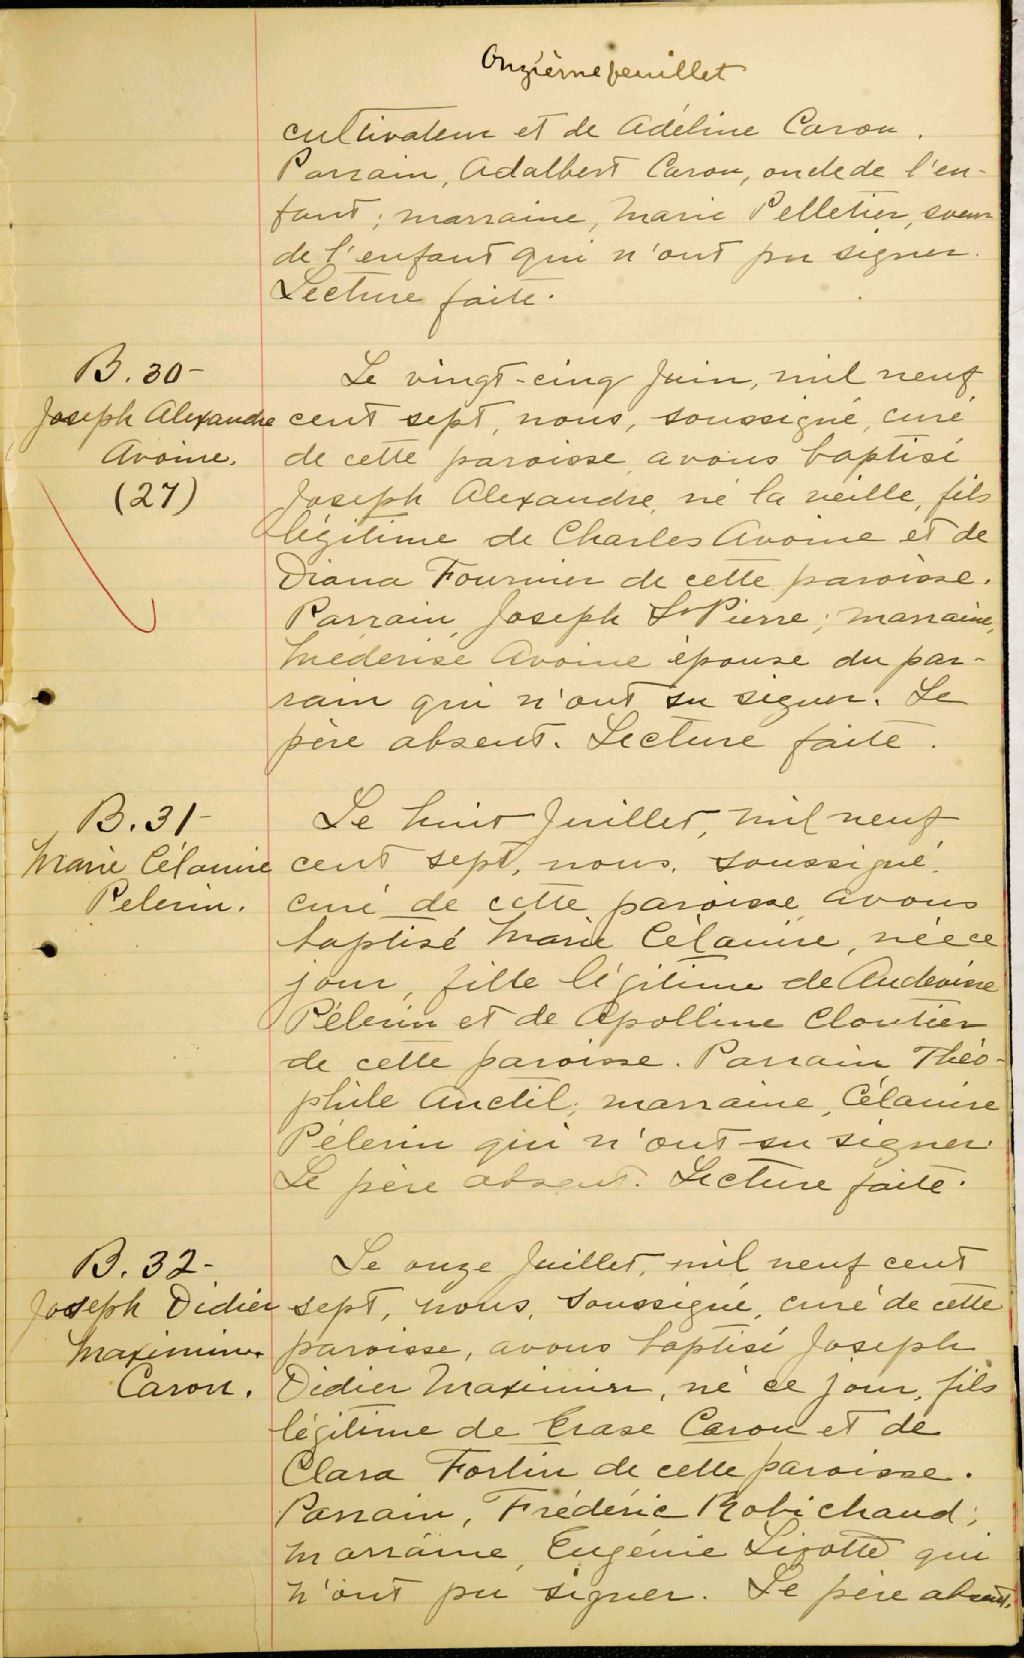 Onzième feuillet
cultivateur et de Adéline Caron.
Parrain, Adalbert Caron, oncle de l'en-
fant; marraine, Marie Pelletier, soeur
de l'enfant qui n'ont pu signer.
Lecture faite.
B. 30-
Joseph Alexandre
Avoine.
(27)
Le vingt-cinq Juin, mil neuf
cent sept, nous, soussigné, curé
de cette paroisse, avons baptisé
Joseph Alexandre, né la veille, fils
légitime de Charles Avoine et de
Diana Fournier de cette paroisse.
Parrain, Joseph St Pierre; marraine,
Médérise Avoine épouse du par-
rain qui n'ont su signer. Le
père absent. Lecture faite.
B. 31-
Marie Célanire
Pelerin.
Le huit Juillet, mil neuf
cent sept, nous, soussigné,
curé de cette paroisse avons
baptisé Marie Célanire, née ce
jour, fille légitime de
Pélerin et de Apolline Cloutier
de cette paroisse. Parrain, Théo-
phile Anctil; marraine, Célanire
Pélerin qui n'ont su signer.
Le père absent. Lecture faite.
B. 32-
Joseph Didier
Maximin
Caron.
Le onze Juillet, mil neuf cent
sept, nous, soussigné, curé de cette
paroisse, avons baptisé Joseph
Didier Maximin, né ce jour, fils
légitime de Erase Caron et de
Clara Fortin de cette paroisse.
Parrain, Frédéric Robichaud;
marraine, Eugénie Lizotte qui
n'ont pu signer. Le père absent.